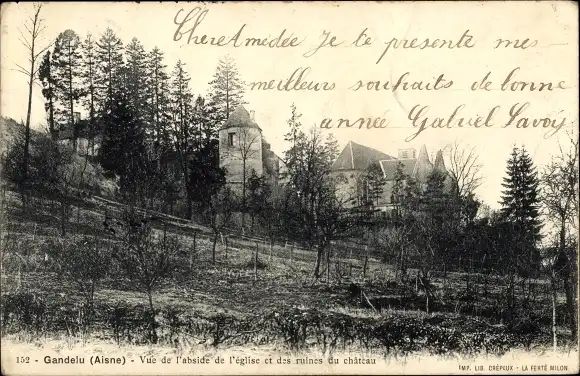 Cher Amédée Je te presente mes
meilleurs souhaits de bonne
année Gabriel Savoy
152 - Gandelu (Aisne) - Vue de l'abside de l'église et des ruines du château
IMP. LIB. CRÉPEUX - LA FERTÉ MILON